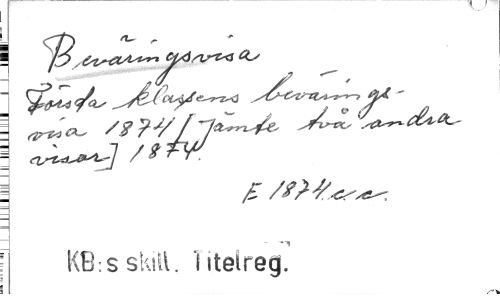 Beväringsvisa
Första klassens bevärings-
visa 1874 [Jämte två andra
visor] 1874.
E 1874.c.c.
KB:s skill. Titelreg.